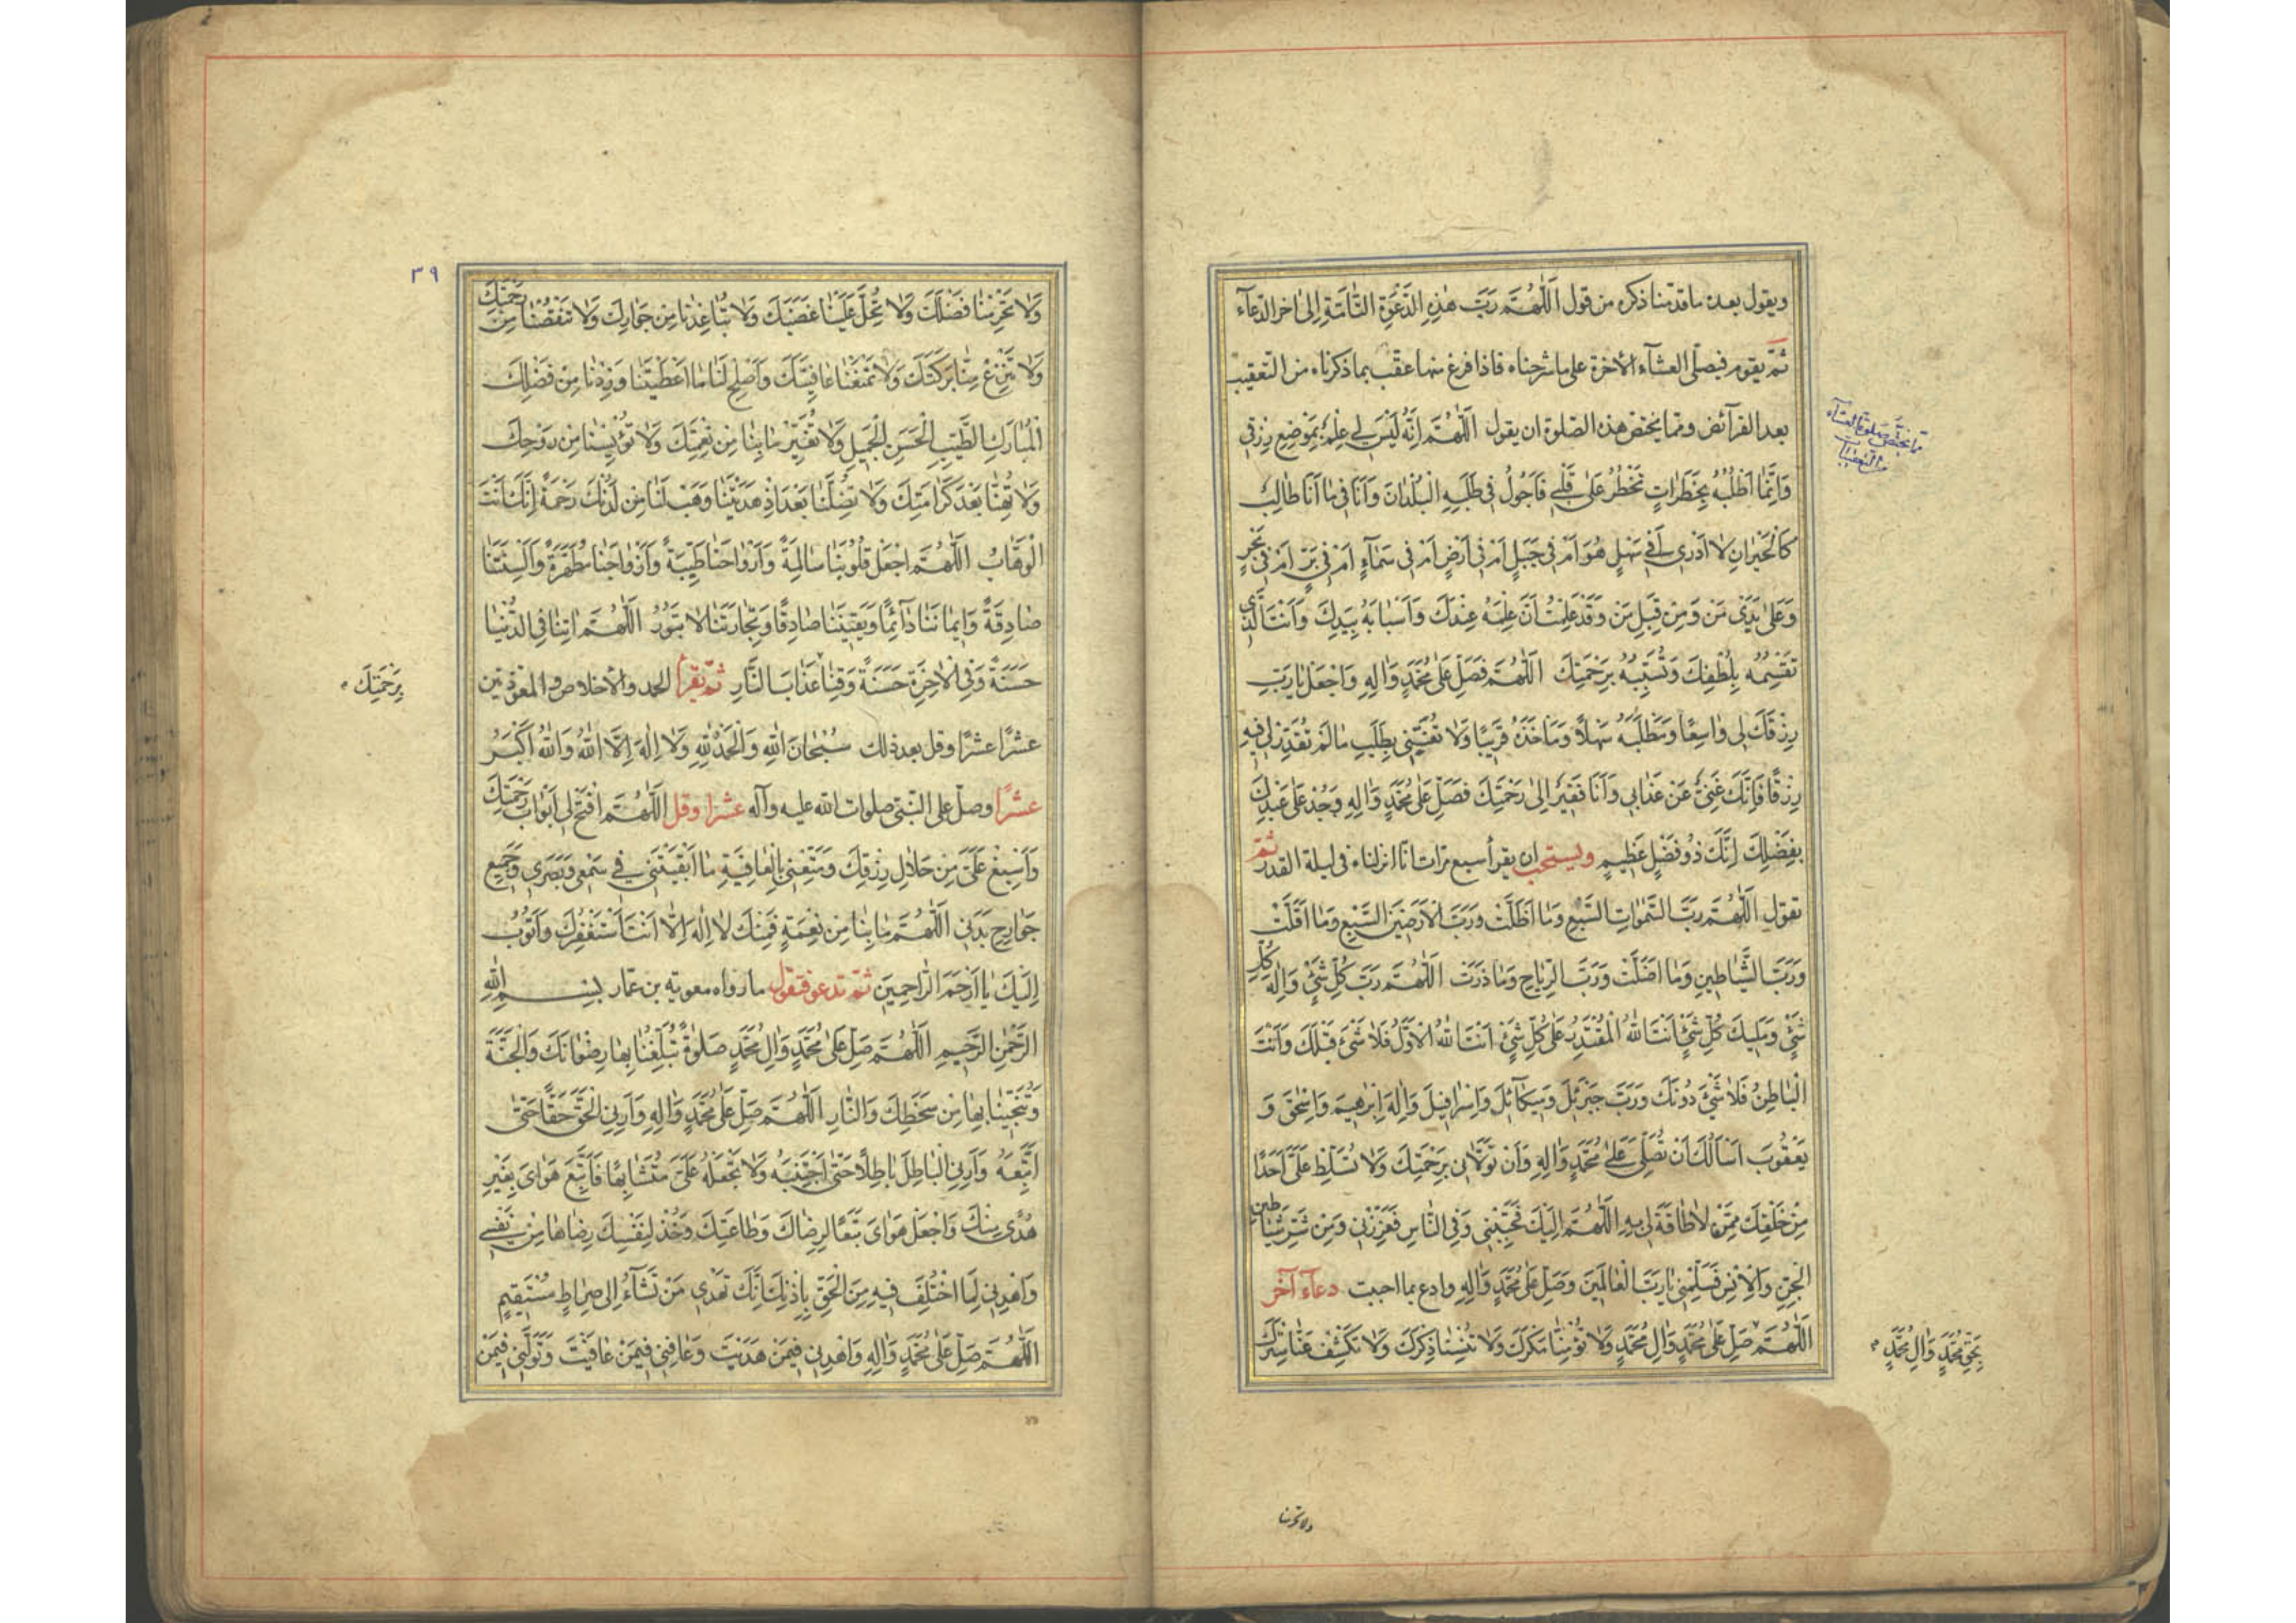 ويقول بعده ما قدمنا ذكره من قول اَللّٰهُمَّ رَبَّ هٰذِهِ الدَّعْوَةِ التَّامَّةِ إِلىٰ اخر الدعآء
ثمّ يقوم فيصلّى العشآء الأخرة على ما شرحناه فاذا فرغ منها عقّب بما ذكرناه من التعقيب
بعد الفرآئض ومما يختص هذه الصلوة ان يقول اَللّٰهُمَّ اِنَّهُ لَيْسَ لِي عِلْمٌ بِمَوْضِعِ رِزْقِي
وَاِنَّمَا اَطْلُبُهُ بِخَطَرَاتٍ تَخْطُرُ عَلىٰ قَلْبِي فَاَجُولُ فِي طَلَبِهِ الْبُلْدَانَ وَاَنَا فِي مَا اَنَا طَالِبٌ
كَالْحَيْرَانِ لاٰ اَدْرِي اَفِي سَهْلٍ هُوَ اَمْ فِي جَبَلٍ اَمْ فِي اَرْضٍ اَمْ فِي سَمَآءٍ اَمْ فِي بَرٍّ اَمْ فِي بَحْرٍ
وَعَلىٰ يَدَيْ مَنْ وَمِنْ قِبَلِ مَنْ وَقَدْ عَلِمْتُ اَنَّ عِلْمَهُ عِنْدَكَ وَاَسْبَابَهُ بِيَدِكَ وَاَنْتَ الَّذِي
تَقْسِمُهُ بِلُطْفِكَ وَتُسَبِّبُهُ بِرَحْمَتِكَ اَللّٰهُمَّ فَصَلِّ عَلىٰ مُحَمَّدٍ وَاٰلِهِ وَاجْعَلْ يَا رَبِّ
رِزْقَكَ لِي وَاسِعًا وَمَطْلَبَهُ سَهْلًا وَمَأْخَذَهُ قَرِيبًا وَلاٰ تُعَنِّنِي بِطَلَبِ مَا لَمْ تُقَدِّرْ لِي فِيهِ
رِزْقًا فَاِنَّكَ غَنِيٌّ عَنْ عَذَابِي وَاَنَا فَقِيرٌ اِلىٰ رَحْمَتِكَ فَصَلِّ عَلىٰ مُحَمَّدٍ وَاٰلِهِ وَجُدْ عَلىٰ عَبْدِكَ
بِفَضْلِكَ اِنَّكَ ذُو فَضْلٍ عَظِيمٍ ويستحب ان يقرأ سبع مرّات انا انزلناه فى ليلة القدر ثمّ
تقول اَللّٰهُمَّ رَبَّ السَّمٰوَاتِ السَّبْعِ وَمَا اَظَلَّتْ وَرَبَّ الْاَرَضِينَ السَّبْعِ وَمَا اَقَلَّتْ
وَرَبَّ الشَّيَاطِينِ وَمَا اَضَلَّتْ وَرَبَّ الرِّيَاحِ وَمَا ذَرَتْ اَللّٰهُمَّ رَبَّ كُلِّ شَيْءٍ وَاِلٰهَ كُلِّ
شَيْءٍ وَمَلِيكَ كُلِّ شَيْءٍ اَنْتَ اللّٰهُ الْمُقْتَدِرُ عَلىٰ كُلِّ شَيْءٍ اَنْتَ اللّٰهُ الْاَوَّلُ فَلاٰ شَيْءَ قَبْلَكَ وَاَنْتَ
الْبَاطِنُ فَلاٰ شَيْءَ دُونَكَ وَرَبَّ جَبْرَئِلَ وَمِيكَآئِلَ وَاِسْرَافِيلَ وَاِلٰهَ اِبْرٰهِيمَ وَاِسْحٰقَ وَ
يَعْقُوبَ اَسْاَلُكَ اَنْ تُصَلِّيَ عَلىٰ مُحَمَّدٍ وَاٰلِهِ وَاَنْ تَوَلاَّنِي بِرَحْمَتِكَ وَلاٰ تُسَلِّطْ عَلَيَّ اَحَدًا
مِنْ خَلْقِكَ مِمَّنْ لاٰ طَاقَةَ لِي بِهِ اَللّٰهُمَّ اِلَيْكَ فَحَبِّبْنِي وَفِي النَّاسِ فَعَزِّزْنِي وَمِنْ شَرِّ شَيَاطِينِ
الْجِنِّ وَالْاِنْسِ فَسَلِّمْنِي يَا رَبَّ الْعَالَمِينَ وَصَلِّ عَلىٰ مُحَمَّدٍ وَاٰلِهِ وادع بما احببت دعآء آخر
اَللّٰهُمَّ صَلِّ عَلىٰ مُحَمَّدٍ وَاٰلِ مُحَمَّدٍ وَلاٰ تُؤْمِنَّا مَكْرَكَ وَلاٰ تُنْسِنَا ذِكْرَكَ وَلاٰ تَكْشِفْ عَنَّا سِتْرَكَ
مما يختص صلوة العشآء
من التعقيبات
بِحَقِّ مُحَمَّدٍ وَاٰلِ مُحَمَّدٍ
ولا تحرمنا
٣٩
وَلاٰ تَحْرِمْنَا فَضْلَكَ وَلاٰ تُحِلَّ عَلَيْنَا غَضَبَكَ وَلاٰ تُبَاعِدْنَا مِنْ جِوَارِكَ وَلاٰ تَنْقُصْنَا مِنْ رَحْمَتِكَ
وَلاٰ تَنْزِعْ مِنَّا بَرَكَتَكَ وَلاٰ تَمْنَعْنَا عَافِيَتَكَ وَاَصْلِحْ لَنَا مَا اَعْطَيْتَنَا وَزِدْنَا مِنْ فَضْلِكَ
الْمُبَارَكِ الطَّيِّبِ الْحَسَنِ الْجَمِيلِ وَلاٰ تُغَيِّرْ مَا بِنَا مِنْ نِعْمَتِكَ وَلاٰ تُؤْيِسْنَا مِنْ رَوْحِكَ
وَلاٰ تُهِنَّا بَعْدَ كَرَامَتِكَ وَلاٰ تُضِلَّنَا بَعْدَ اِذْ هَدَيْتَنَا وَهَبْ لَنَا مِنْ لَدُنْكَ رَحْمَةً اِنَّكَ اَنْتَ
الْوَهَّابُ اَللّٰهُمَّ اجْعَلْ قُلُوبَنَا سَالِمَةً وَاَرْوَاحَنَا طَيِّبَةً وَاَزْوَاجَنَا مُطَهَّرَةً وَاَلْسِنَتَنَا
صَادِقَةً وَاِيمَانَنَا دَآئِمًا وَيَقِينَنَا صَادِقًا وَتِجَارَتَنَا لاٰ تَبُورُ اَللّٰهُمَّ اٰتِنَا فِي الدُّنْيَا
حَسَنَةً وَفِي الْاٰخِرَةِ حَسَنَةً وَقِنَا عَذَابَ النَّارِ ثمّ تقرأ الحمد والأخلاص والمعوّذتين
عشرًا عشرًا وقل بعد ذلك سُبْحَانَ اللّٰهِ وَالْحَمْدُ لِلّٰهِ وَلاٰ اِلٰهَ اِلاَّ اللّٰهُ وَاللّٰهُ اَكْبَرُ
عشرًا وصلّ على النبّى صلوات الله عليه وآله عشرا وقل اَللّٰهُمَّ افْتَحْ لِي اَبْوَابَ رَحْمَتِكَ
وَاَسْبِغْ عَلَيَّ مِنْ حَلاٰلِ رِزْقِكَ وَمَتِّعْنِي بِالْعَافِيَةِ مَا اَبْقَيْتَنِي فِي سَمْعِي وَبَصَرِي وَجَمِيعِ
جَوَارِحِ بَدَنِي اَللّٰهُمَّ مَا بِنَا مِنْ نِعْمَةٍ فَمِنْكَ لاٰ اِلٰهَ اِلاَّ اَنْتَ اَسْتَغْفِرُكَ وَاَتُوبُ
اِلَيْكَ يَا اَرْحَمَ الرَّاحِمِينَ ثمّ تدعو فتقول ما رواه معوية بن عمّار بِسْمِ اللّٰهِ
الرَّحْمٰنِ الرَّحِيمِ اَللّٰهُمَّ صَلِّ عَلىٰ مُحَمَّدٍ وَاٰلِ مُحَمَّدٍ صَلوٰةً تُبَلِّغُنَا بِهَا رِضْوَانَكَ وَالْجَنَّةَ
وَتُنَجِّينَا بِهَا مِنْ سَخَطِكَ وَالنَّارِ اَللّٰهُمَّ صَلِّ عَلىٰ مُحَمَّدٍ وَاٰلِهِ وَاَرِنِي الْحَقَّ حَقًّا حَتّىٰ
اَتَّبِعَهُ وَاَرِنِي الْبَاطِلَ بَاطِلًا حَتّىٰ اَجْتَنِبَهُ وَلاٰ تَجْعَلْهُ عَلَيَّ مُتَشَابِهًا فَاَتَّبِعَ هَوَايَ بِغَيْرِ
هُدًى مِنْكَ وَاجْعَلْ هَوَايَ تَبَعًا لِرِضَاكَ وَطَاعَتِكَ وَخُذْ لِنَفْسِكَ رِضَاهَا مِنْ نَفْسِي
وَاهْدِنِي لِمَا اخْتُلِفَ فِيهِ مِنَ الْحَقِّ بِاِذْنِكَ اِنَّكَ تَهْدِي مَنْ تَشَآءُ اِلىٰ صِرَاطٍ مُسْتَقِيمٍ
اَللّٰهُمَّ صَلِّ عَلىٰ مُحَمَّدٍ وَاٰلِهِ وَاهْدِنِي فِيمَنْ هَدَيْتَ وَعَافِنِي فِيمَنْ عَافَيْتَ وَتَوَلَّنِي فِيمَنْ
بِرَحْمَتِكَ